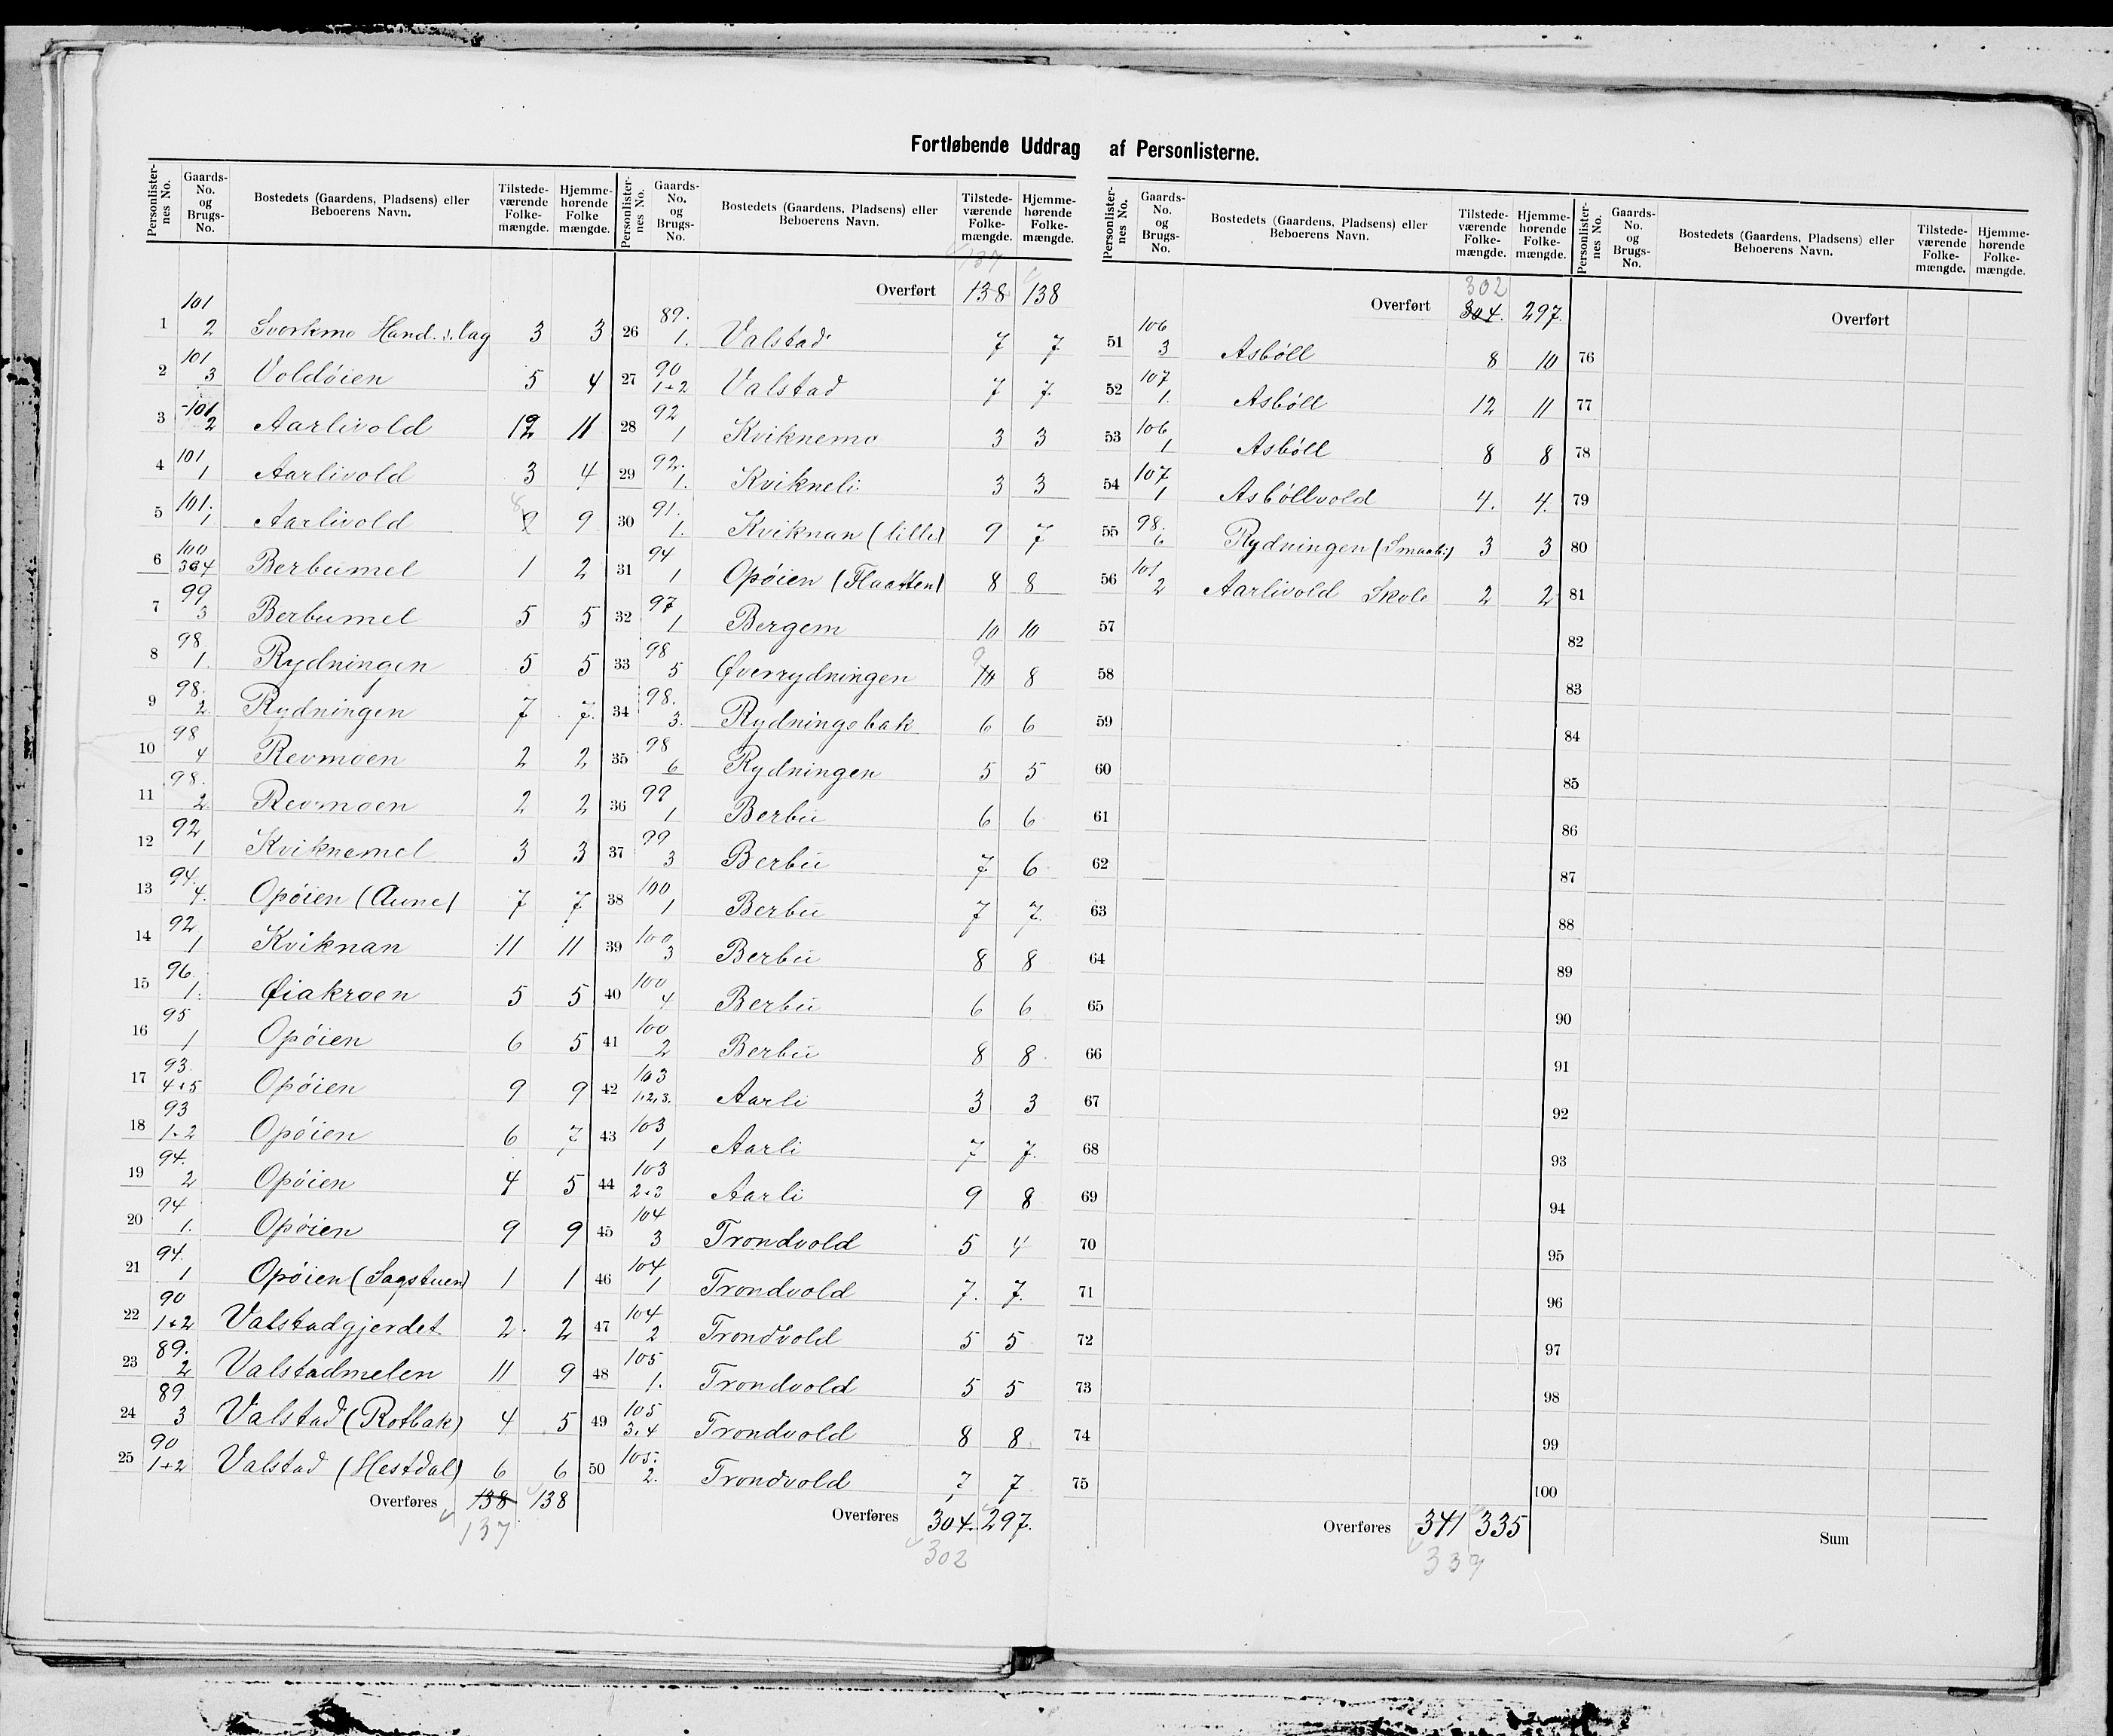 Fortløbende Uddrag af Personlisterne.
Personlister-nes No. Gaards-No. og Brugs-No. Bostedets (Gaardens, Pladsens) eller Beboerens Navn. Tilstede-værende Folke-mængde. Hjemme-hørende Folke mængde.
1 101 2 Svorkmo Hand.s.lag 3 3
2 101 3 Voldøien 5 4
3 101 2 Aarlivold 12 11
4 101 1 Aarlivold 3 4
5 101. 1 Aarlivold 8 9
6 100 3&4 Berbumel 1 2
7 99 3 Berbumel 5 5
8 98 1. Rydningen 5 5
9 98. 2. Rydningen 7 7.
10 98 4 Revmoen 2 2
11 98. 2 Revmoen 2 2
12 92 1 Kviknemel 3 3
13 94. 4. Opøien (Aune) 7 7
14 92 1 Kviknan 11 11
15 96. 1. Øiakroen 5 5
16 95 1 Opøien 6 5
17 93. 4+5 Opøien 9 9
18 93 1+2 Opøien 6 7
19 94. 2 Opøien 4 5
20 94 1. Opøien 9 9
21 94. 1 Opøien (Sagstuen) 1 1
22 90 1+2 Valstadgjerdet 2. 2
23 89. 2 Valstadmelen 11 9
24 89 3 Valstad (Rotbak) 4 5
25 90 1+2 Valstad (Hestdal) 6 6
Overføres 138 138
137
Personlister-nes No. Gaards-No. og Brugs-No. Bostedets (Gaardens, Pladsens) eller Beboerens Navn. Tilstede-værende Folke-mængde. Hjemme-hørende Folke-mængde.
137
Overført 138 138
26 89. 1. Valstad 7 7
27 90 1+2 Valstad 7 7
28 92 1 Kviknemo 3 3
29 92. 1. Kvikneli 3 3
30 91. 1. Kviknan (lille) 9 7
31 94 1 Opøien (Flaatten) 8 8
32 97 1 Bergem 10 10
33 98 5 Øverrydningen 9 10 8
34 98. 3. Rydningsbak 6 6
35 98 6 Rydningen 5 5
36 99 1 Berbu 6 6
37 99 3 Berbu 7 6
38 100 1 Berbu 7 7
39 100 3 Berbu 8 8
40 100 4 Berbu 6 6
41 100 2 Berbu 8 8
42 103 1,2,3. Aarli 3 3
43 103 1 Aarli 7 7.
44 103 2+3 Aarli 9 8
45 104 3 Trondvold 5 4
46 104 1 Trondvold 7. 7.
47 104 2 Trondvold 5 5
48 105 1. Trondvold 5 5
49 105 3,4 Trondvold 8 8.
50 105. 2. Trondvold 7 7
Overføres 304. 297.
302
Personlister-nes No. Gaards-No. og Brugs-No. Bostedets (Gaardens, Pladsens) eller Beboerens Navn. Tilstede-værende Folke-mængde. Hjemme-hørende Folke-mængde.
302
Overført 304. 297.
51 106 3 Asbøll 8 10
52 107 1. Asbøll 12 11
53 106 1 Asbøll 8 8
54 107 1 Asbøllvold 4. 4.
55 98. 6 Rydningen (Smaab:) 3 3
56 101 2 Aarlivold Skole 2 2
57
58
59
60
61
62
63
64
65
66
67
68
69
70
71
72
73
74
75
Overføres 341 335
339
Personlister-nes No. Gaards-No. og Brugs-No. Bostedets (Gaardens, Pladsens) eller Beboerens Navn. Tilstede-værende Folke-mængde. Hjemme-hørende Folke-mængde.
Overført
76
77
78
79
80
81
82
83
84
85
86
87
88
89
90
91
92
93
94
95
96
97
98
99
100
Sum